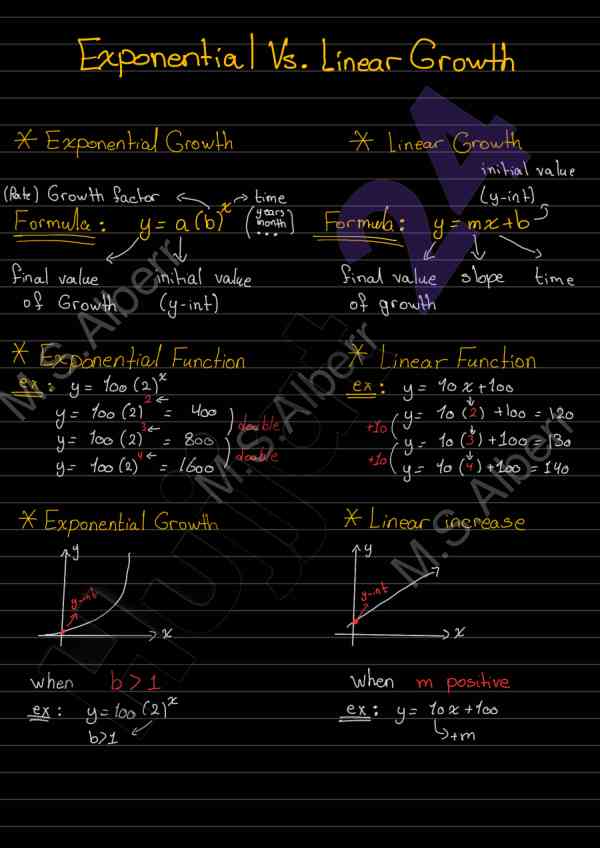 Exponential Vs. Linear Growth
* Exponential Growth
(Rate) Growth factor
time
(years
month
...)
Formula: y = a(b)^x
final value
of Growth
initial value
(y-int)
* Exponential Function
ex: y = 100(2)^x
y = 100(2)^2 = 400
y = 100(2)^3 = 800
y = 100(2)^4 = 1600
double
double
* Exponential Growth
y
y-int
x
when b > 1
ex: y = 100(2)^x
b>1
* Linear Growth
initial value
(y-int)
Formula: y = mx+b
final value
of growth
slope
time
* Linear Function
ex: y = 10x+100
y = 10(2)+100 = 120
y = 10(3)+100 = 130
y = 10(4)+100 = 140
+10
+10
* Linear increase
y
y-int
x
when m positive
ex: y = 10x+100
+m
24
M.S. Alberr
M.S. Alberr
M.S. Alberr